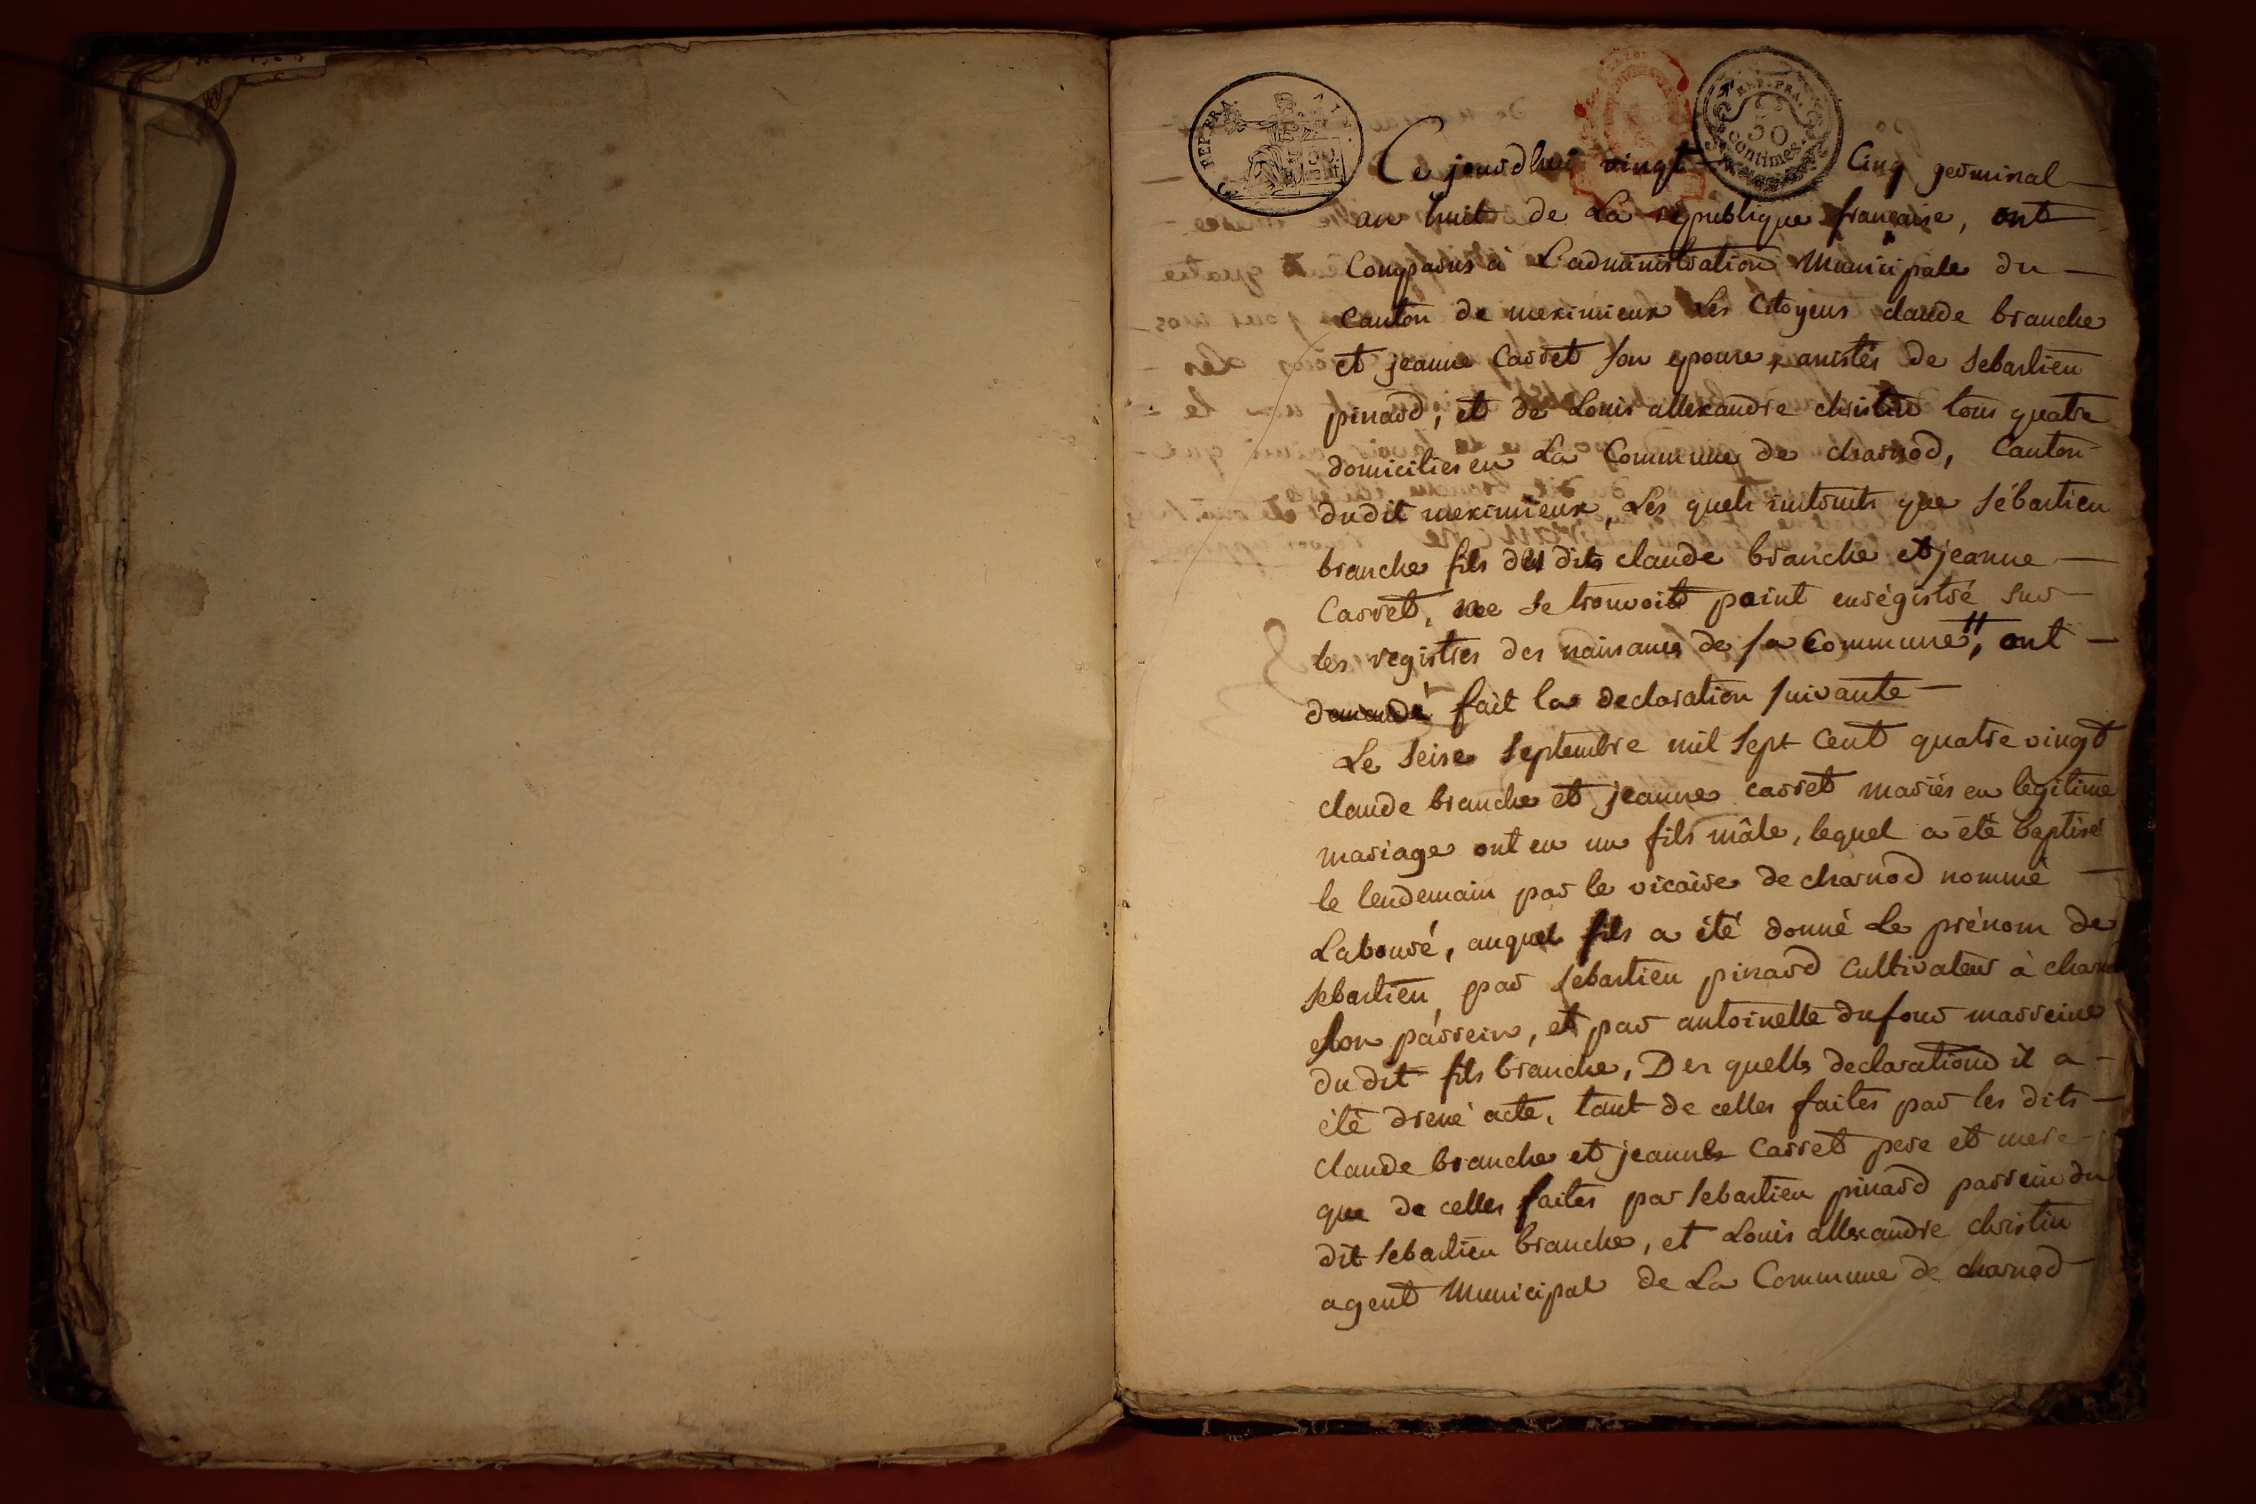 REP. FRA.
AIN.
REP. FRA.
50
Centimes.
Ce jourdhui vingt Cinq germinal
an huit de La republique francaise, ont
Comparus a L'administration Municipale du
Canton de meximieux Les Citoyens claude branche
et jeanne Carret son epouse, assistés de sebastien
pinard, et de Louis allexandre christin tous quatre
domiciliés en La Commune de charnod, Canton
dudit meximieux, Les quels instruits que sébastien
branche fils des dits claude branche et jeanne
Carret, ne se trouvoit point enrégistré sur
les registres des naissances de sa Commune, ont
demandé fait la declaration suivante
Le seise septembre mil sept Cent quatre vingt
claude branche et jeanne carret mariés en légitime
mariage ont eu un fils mâle, lequel a été baptisé
le lendemain par le vicaire de charnod nommé
Labouré, auquel fils a été donné Le prénom de
sebastien, par sebastien pinard Cultivateur à charnod
son parrein, et par antoinette dufour marreine
du dit fils branche, Des quelles declarations il a
été dressé acte, tant de celles faites par les dits
claude branche et jeanne Carret pere et mere
que de celles faites par sebastien pinard parrein du
dit sebastien branche, et Louis allexandre christin
agent Municipal de La Commune de charnod